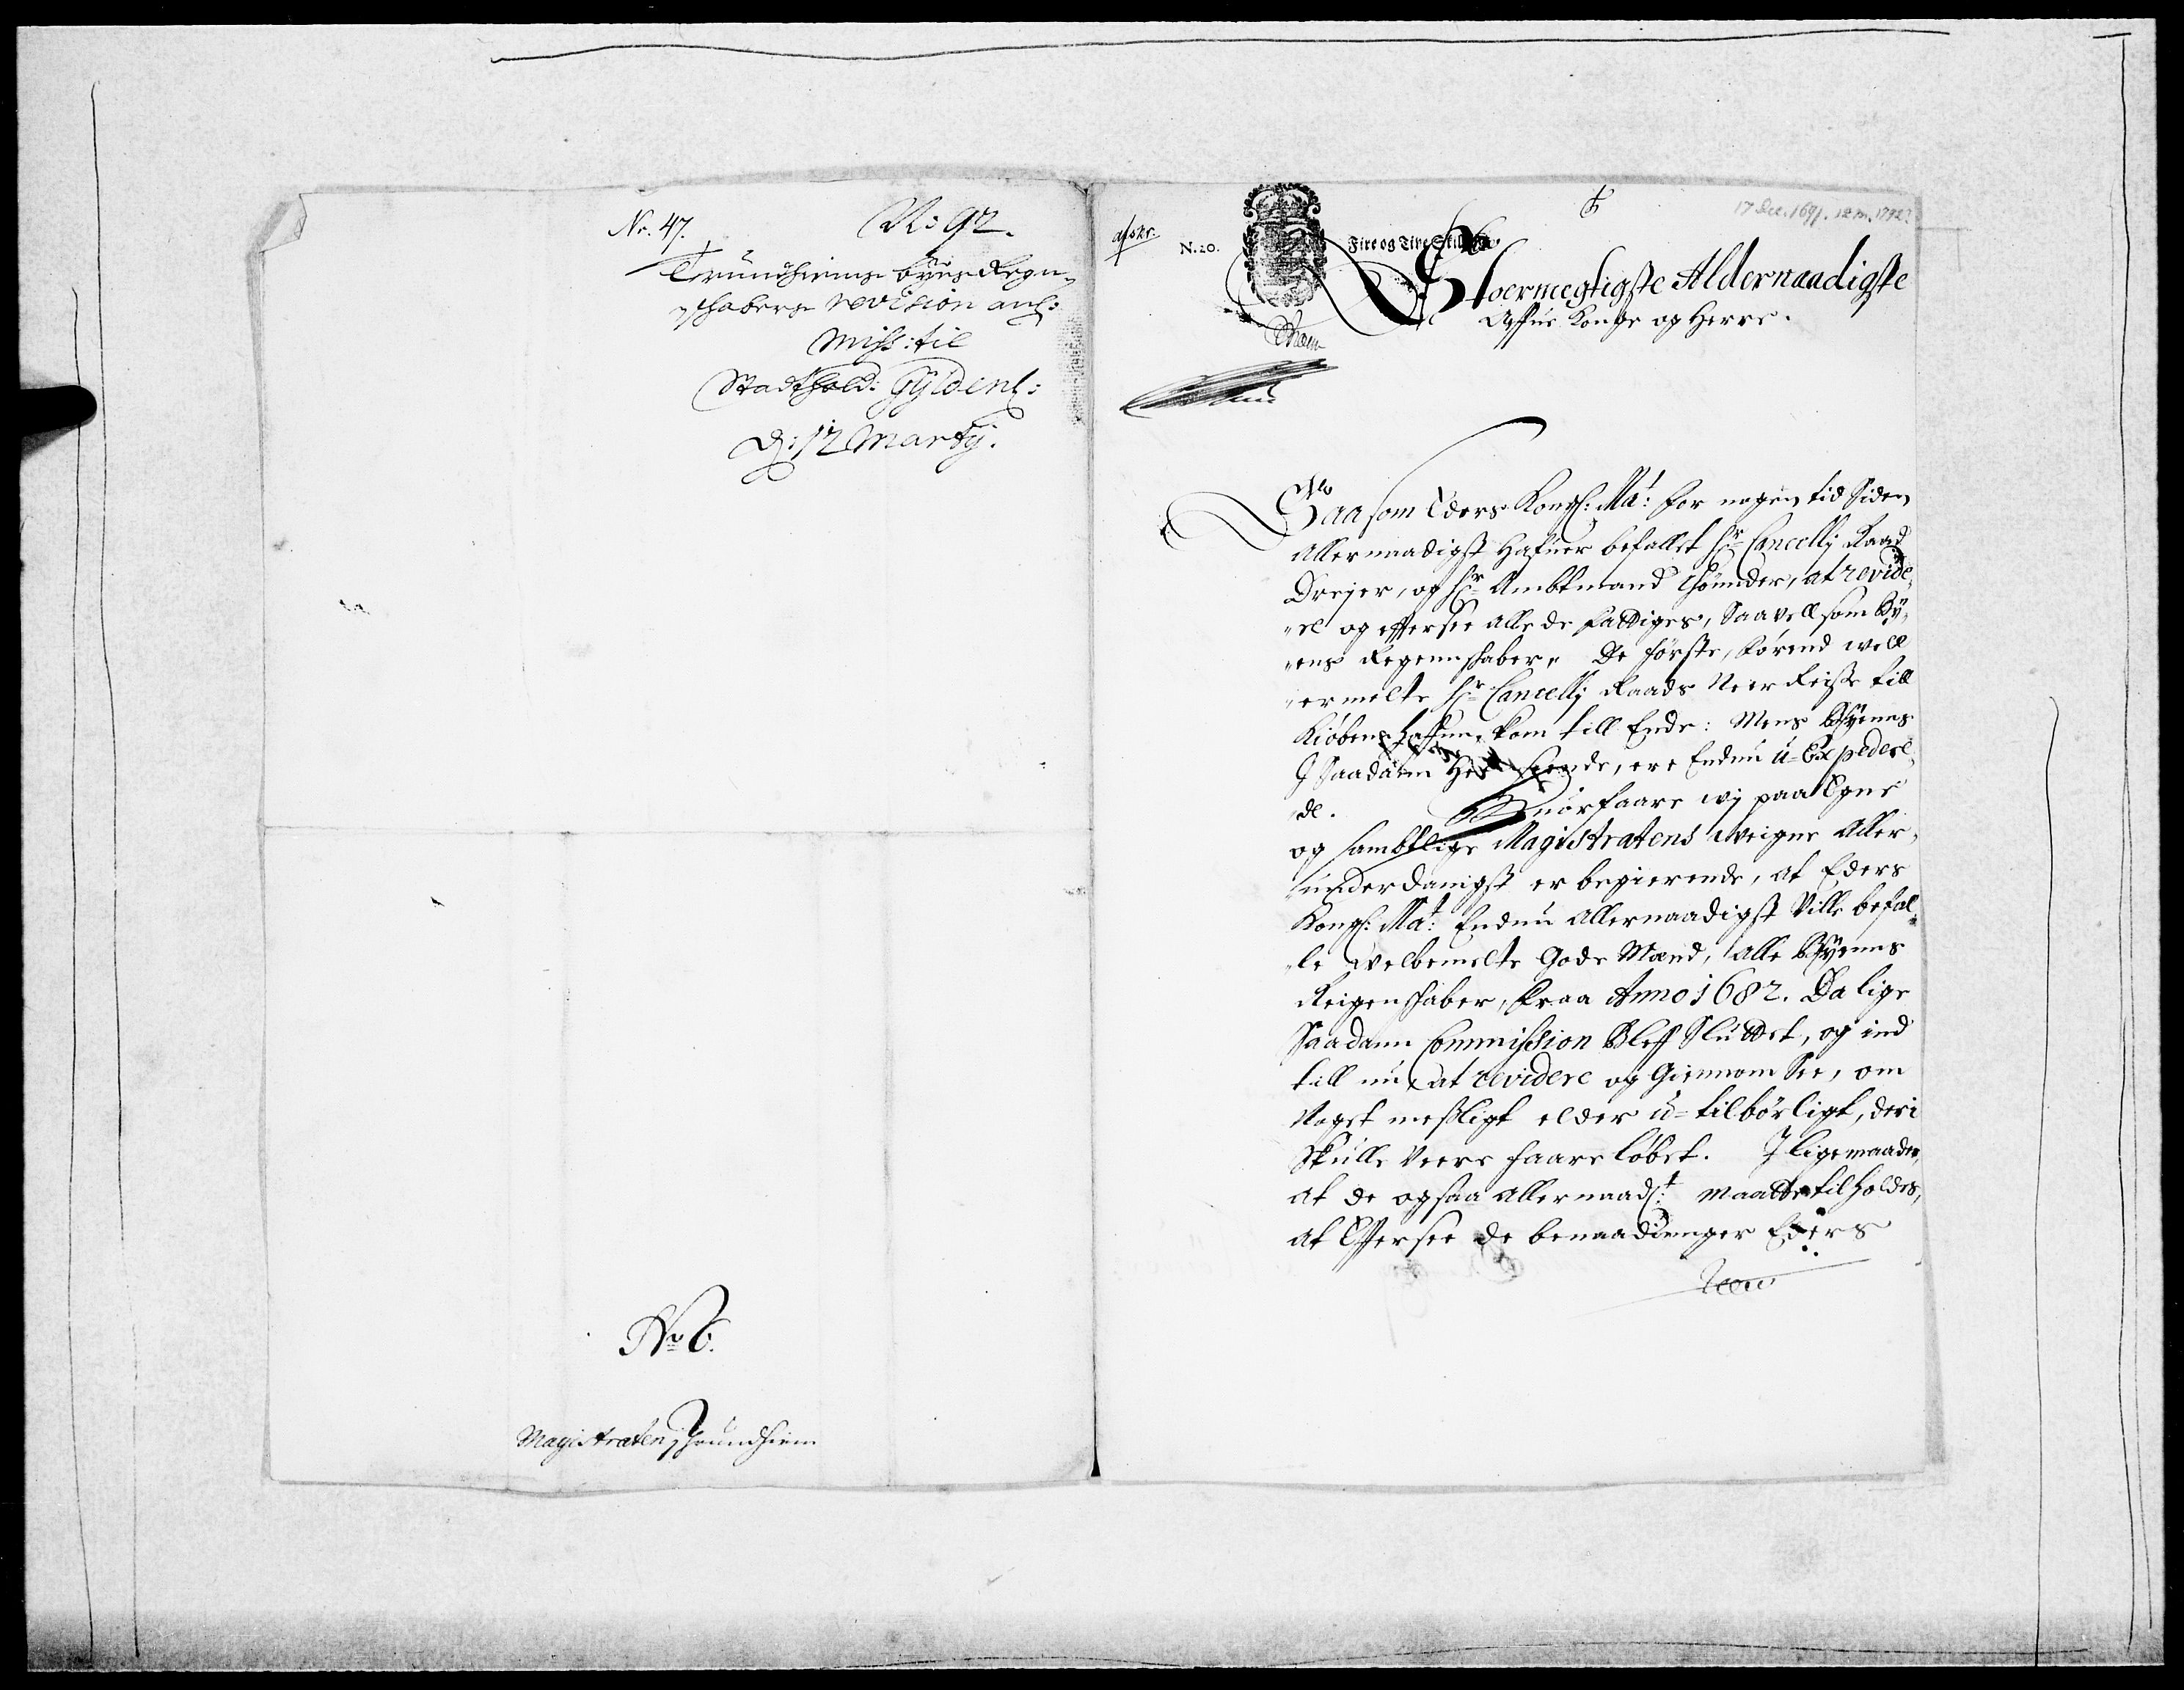 Nr. 47.
N: 92.
Trundhiembs byes Regn¬
schabers revision anl:
Miss: til
Stadthold: Gyldenl:
d: 12 Martij.
No 6.
Magistraten j Trundhiem
afskr.
N. 20.
Fire og Tive Skilling
17 Dec. 1691. 12 m. 1792?
Stoermegtigste Aldernaadigste
Arffue Konge og Herre.
Saasom Eders Kongl: Ma:t for nogen tid siden
Allernaadigst hafuer befallet Hr Cancellj Raad
Drejer, og Hr Ambtmand Tönder, at revide¬
re og efftersee alle de fattiges, saavell som By¬
ens Regenschaber, De förste, förend well
ermelte Hr Cancellj Raads Neer Reisse till
Kiöbenhaffun, kom till Ende: Mens Byenns
J saadann Hen seende, ere Endnu u-Expedere¬
de. Huorfaare wj paa Egne
og sambtlige Magistratens weigne Aller¬
underdanigst er begierende, at Eders
Kongl: Ma:t Endnu Allernaadigst Ville befal¬
le welbemelte Gode Mænd, Alle Byenns
Reigenschaber, fraa Anno 1682. Da lige
Saadann Commission Bleff Sluttet, og ind
till nu at revidere og Giennom See, om
Noget misligt elder u-tilbörligt, deri
Skulle Veere faareløbet. J ligemaader,
at de ogsaa allernaad:t maatte tilholdes,
at Efftersee de benaadninger Eders